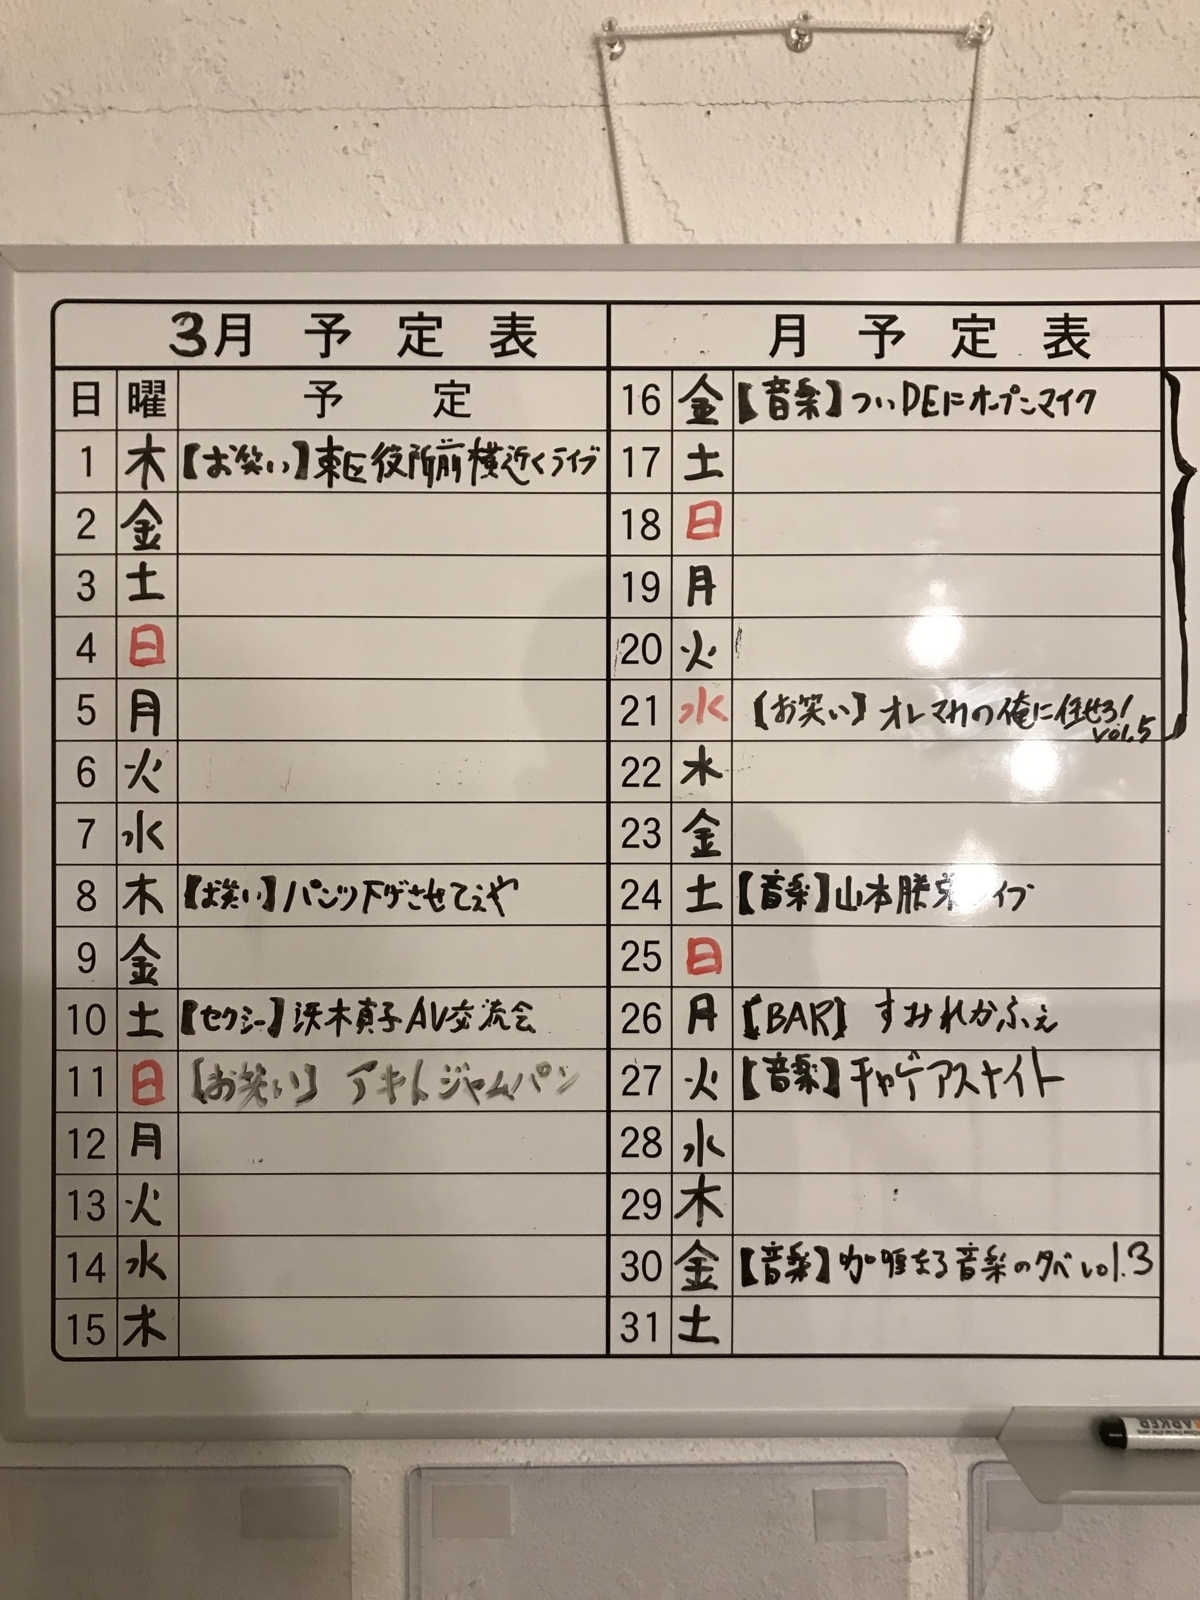 3月 予定表
日 曜 予定
1 木 【お笑い】東区役所前横近くライブ
2 金
3 土
4 日
5 月
6 火
7 水
8 木 【お笑い】パンツ下ゲさせてぇや
9 金
10 土 【セクシー】渋木真子AV交流会
11 日 【お笑い】 アキトジャムパン
12 月
13 火
14 水
15 木
月 予定表
16 金 【音楽】ついDEにオープンマイク
17 土
18 日
19 月
20 火
21 水 【お笑い】オレマカの俺に任せろ!
vol.5
22 木
23 金
24 土 【音楽】山本勝 イブ
25 日
26 月 【BAR】 すみれかふぇ
27 火 【音楽】チャゲアスナイト
28 水
29 木
30 金 【音楽】咖喱なる音楽の夕べvol.3
31 土
MARKER